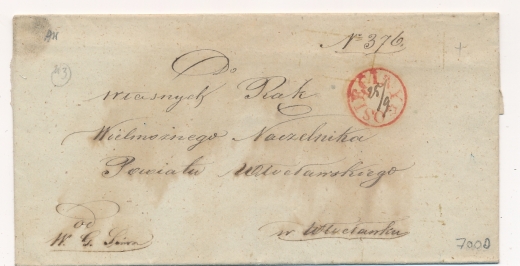 № 376
Do
własnych Rąk
Wielmożnego Naczelnika
Powiatu Włocławskiego
w Włocławku
od
W. G.
25/9
43
7000